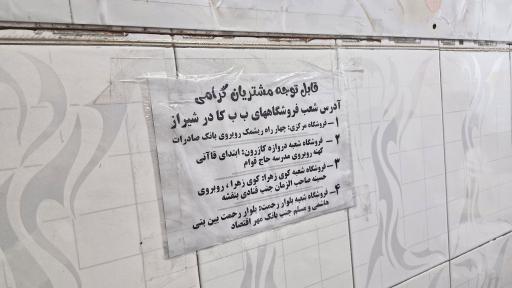 قابل توجه مشتریان گرامی
آدرس شعب فروشگاههای ب ب کا در شیراز
۱ – فروشگاه مرکزی: چهار راه ریشمک روبروی بانک صادرات
۲ – فروشگاه شعبه دروازه کازرون: ابتدای قاآنی
کهنه روبروی مدرسه حاج قوام
۳ – فروشگاه شعبه کوی زهرا: کوی زهرا ، روبروی
حسینه صاحب الزمان جنب قنادی بنفشه
۴ – فروشگاه شعبه بلوار رحمت: بلوار رحمت بین بنی
هاشمی و مسلم جنب بانک مهر اقتصاد